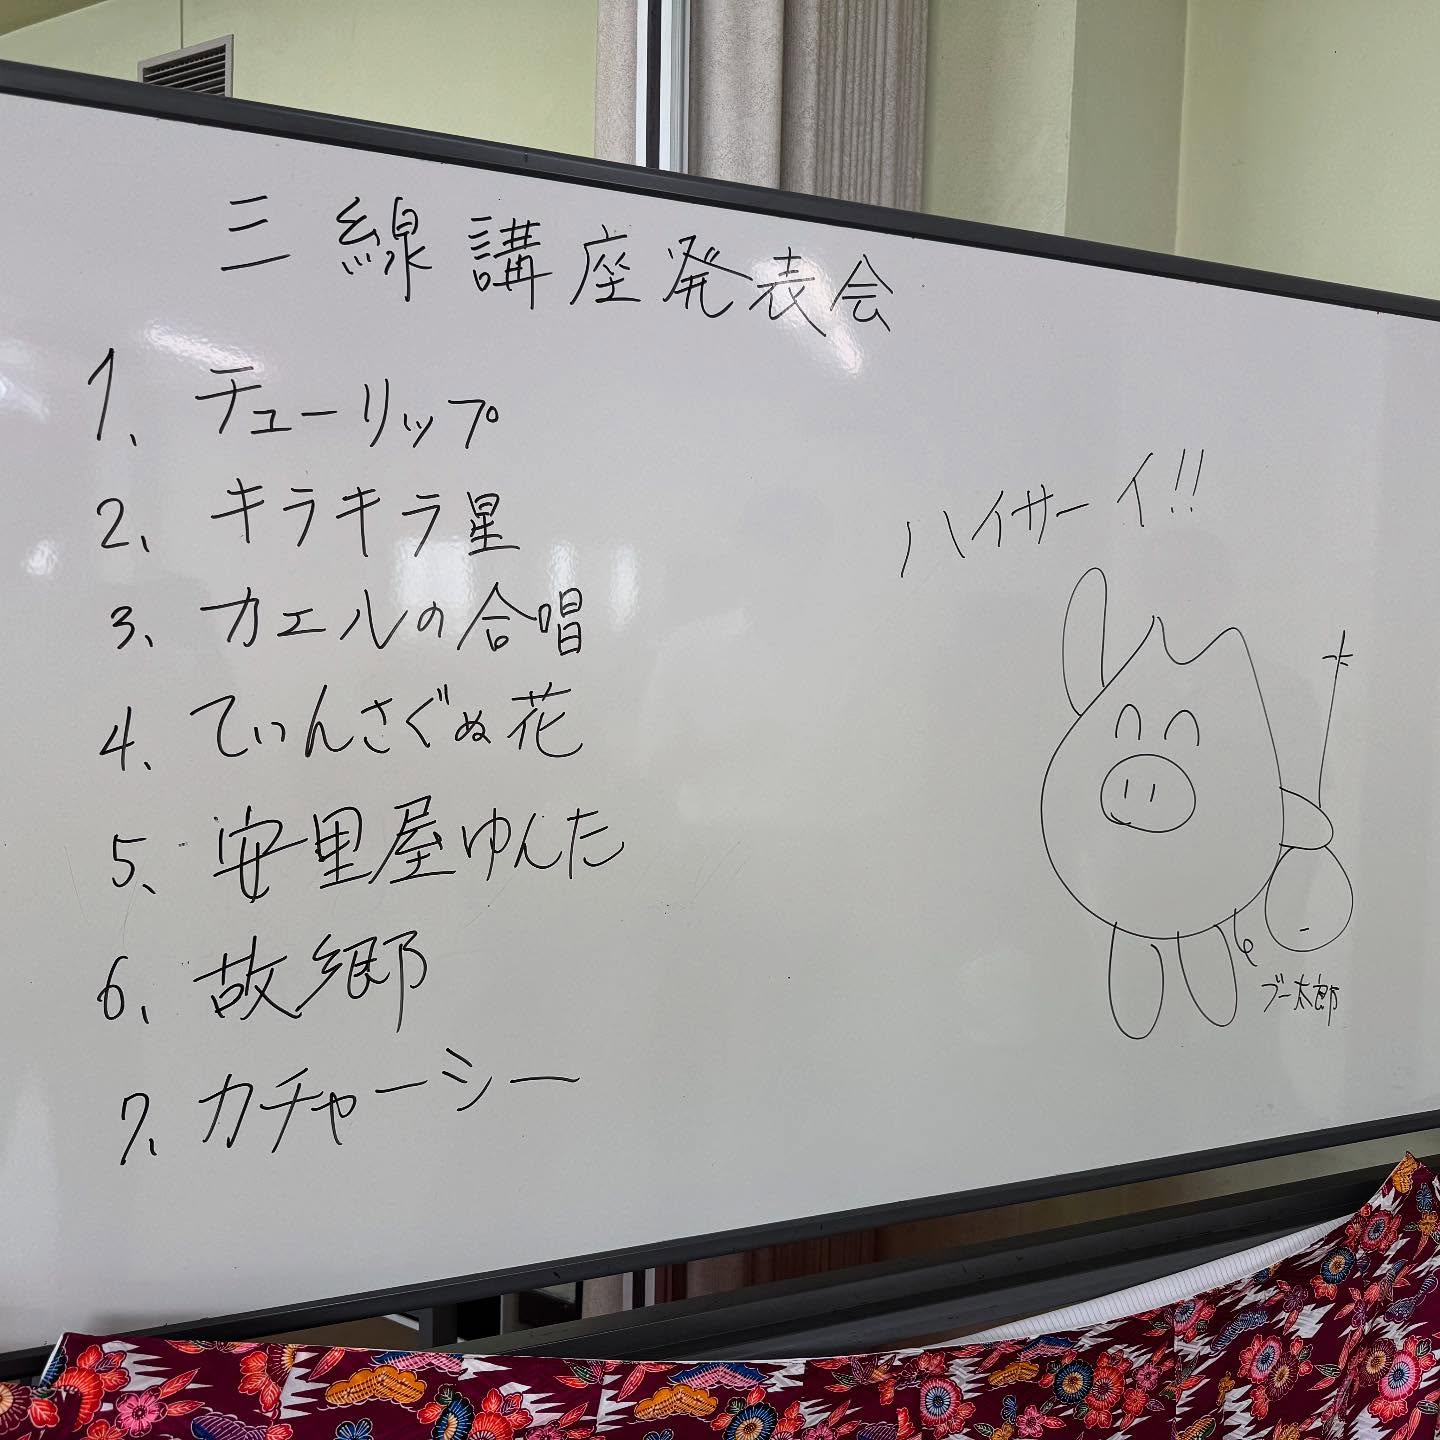 三線講座発表会
1、チューリップ
2、キラキラ星
3、カエルの合唱
4、てぃんさぐぬ花
5、安里屋ゆんた
6、故郷
7、カチャーシー
ハイサーイ!!
ブー太郎